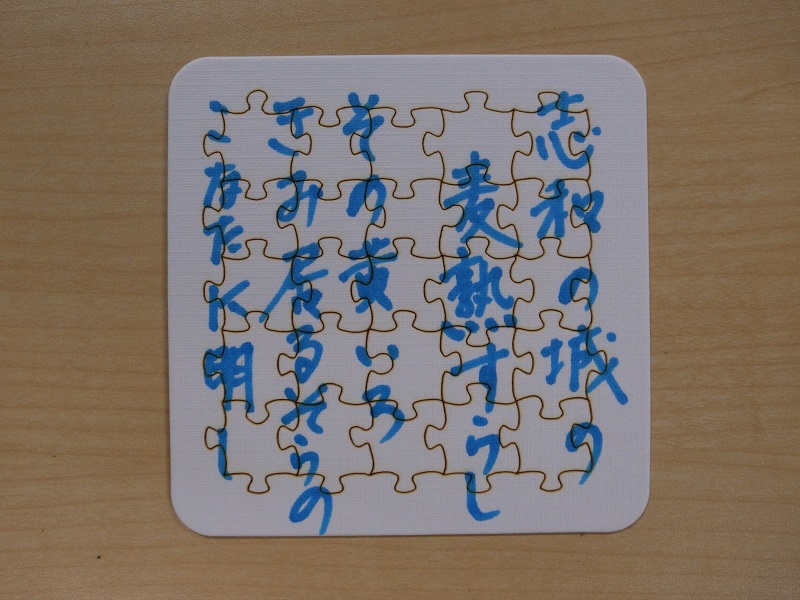 志和の城の
麦熟すらし
その黄いろ
きみ居るそらの
こなたに明し